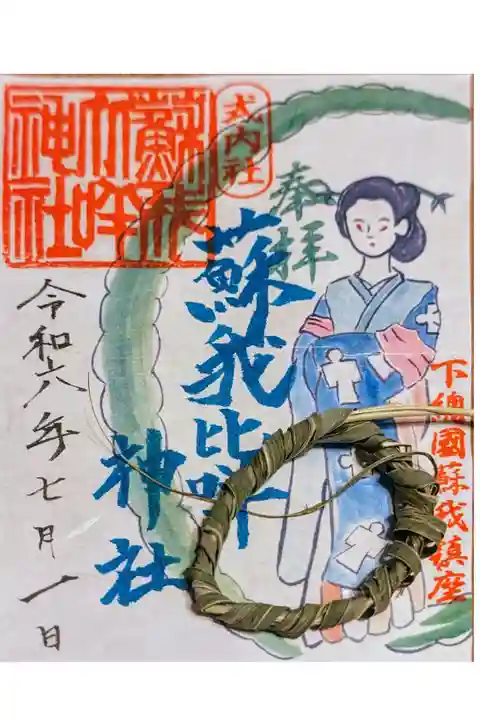 下總國蘇我鎮座
奉拝
式内社
蘇我比咩
神社
蘇我
比咩
神社
令和六年七月一日